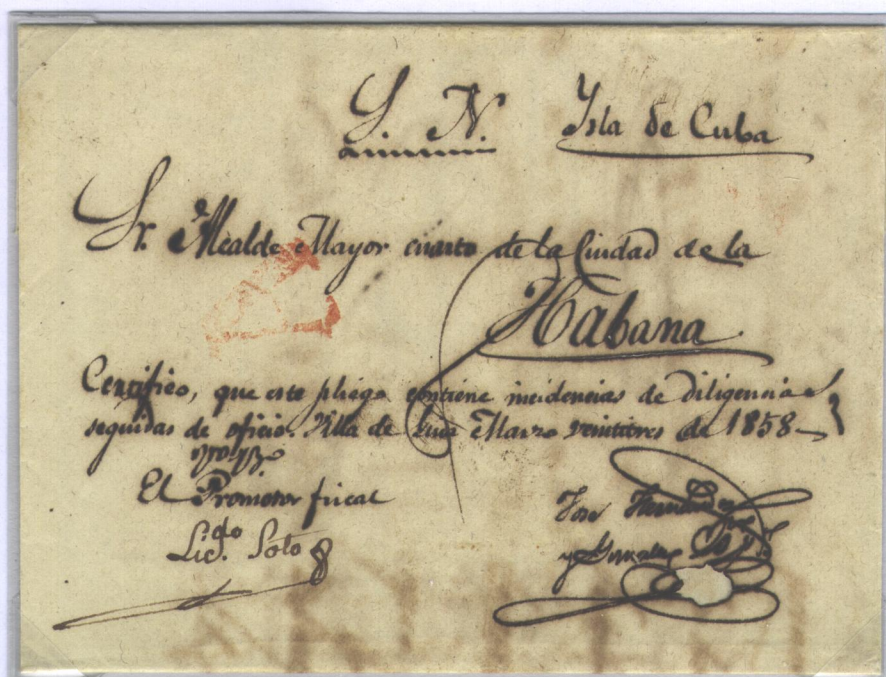 S. N. Isla de Cuba
Sr. Alcalde Mayor cuarto de la Ciudad de la
Habana
Certifico, que este pliego contiene incidencias de diligencias
seguidas de oficio. Villa de Marzo veintitres de 1858
El Promotor fiscal
Licdo. Soto
José Hernandez
y Gonzalez